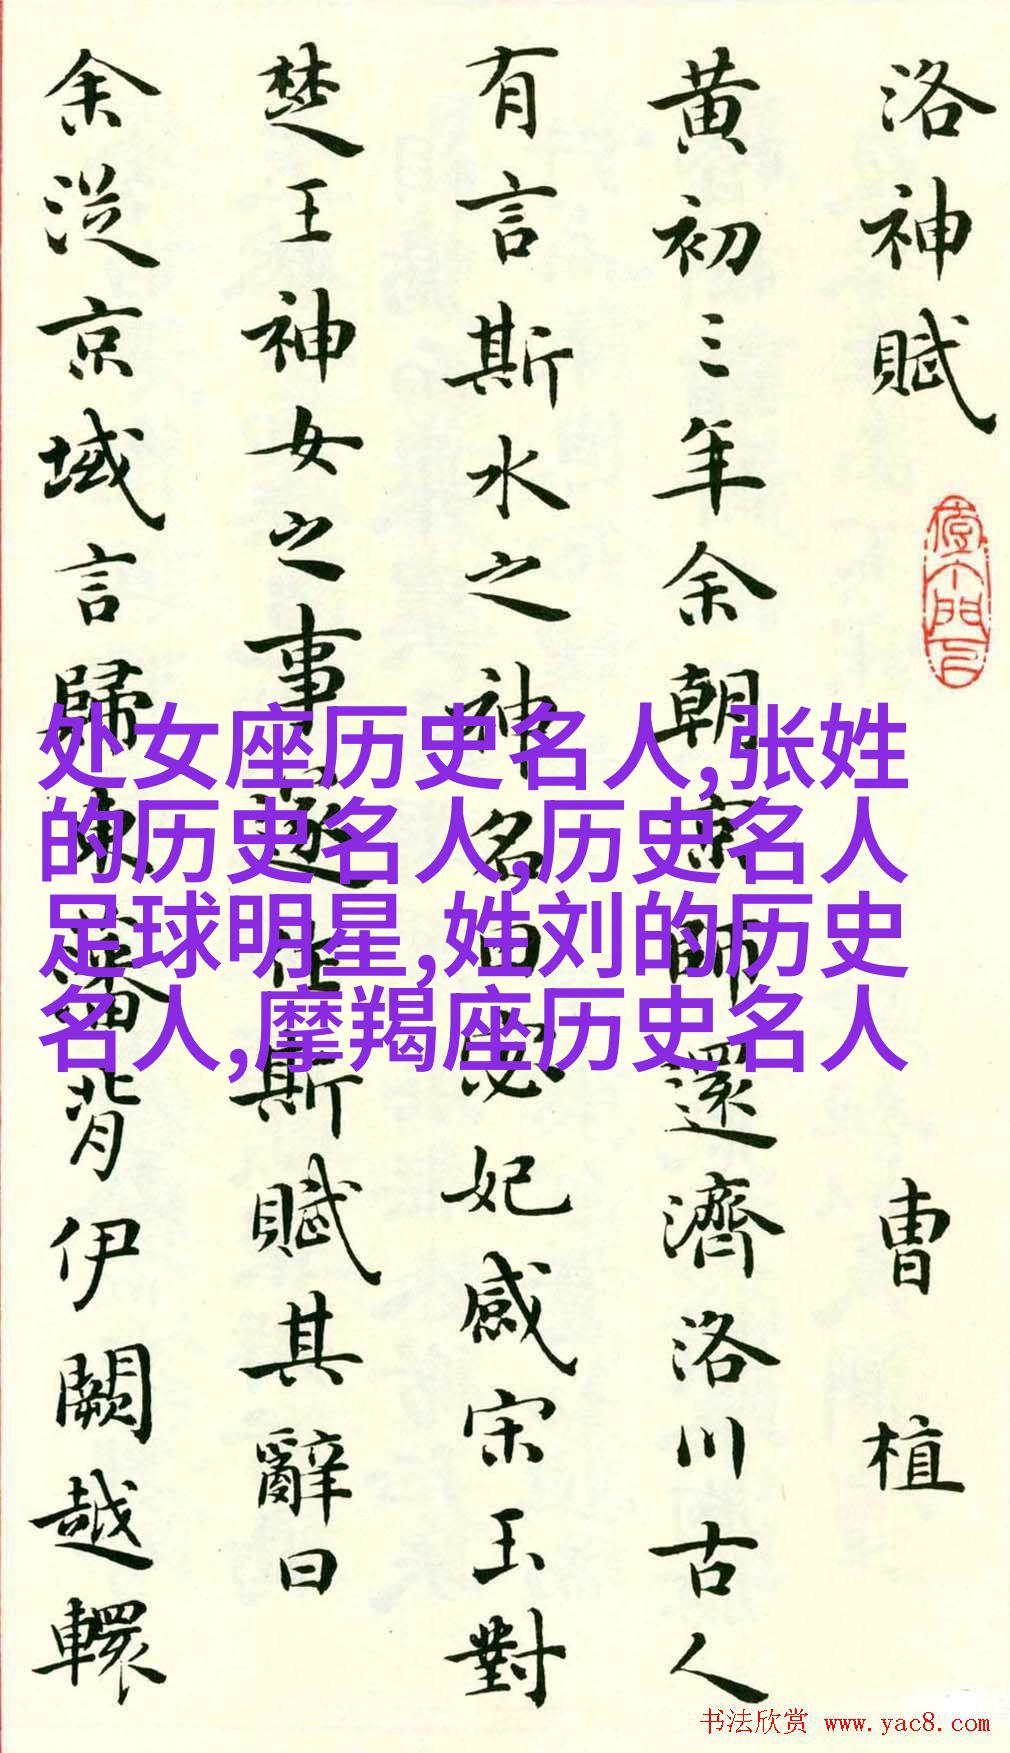 洛神賦
曹植
黃初三年余朝京師還濟洛川古人
有言斯水之神名曰宓妃感宋玉對
楚王神女之事遂作斯賦其辭曰
余從京域言歸東藩背伊闕越轘
处女座历史名人,张姓
的历史名人,历史名人
足球明星,姓刘的历史
名人,摩羯座历史名人
书法欣赏 www.yac8.com